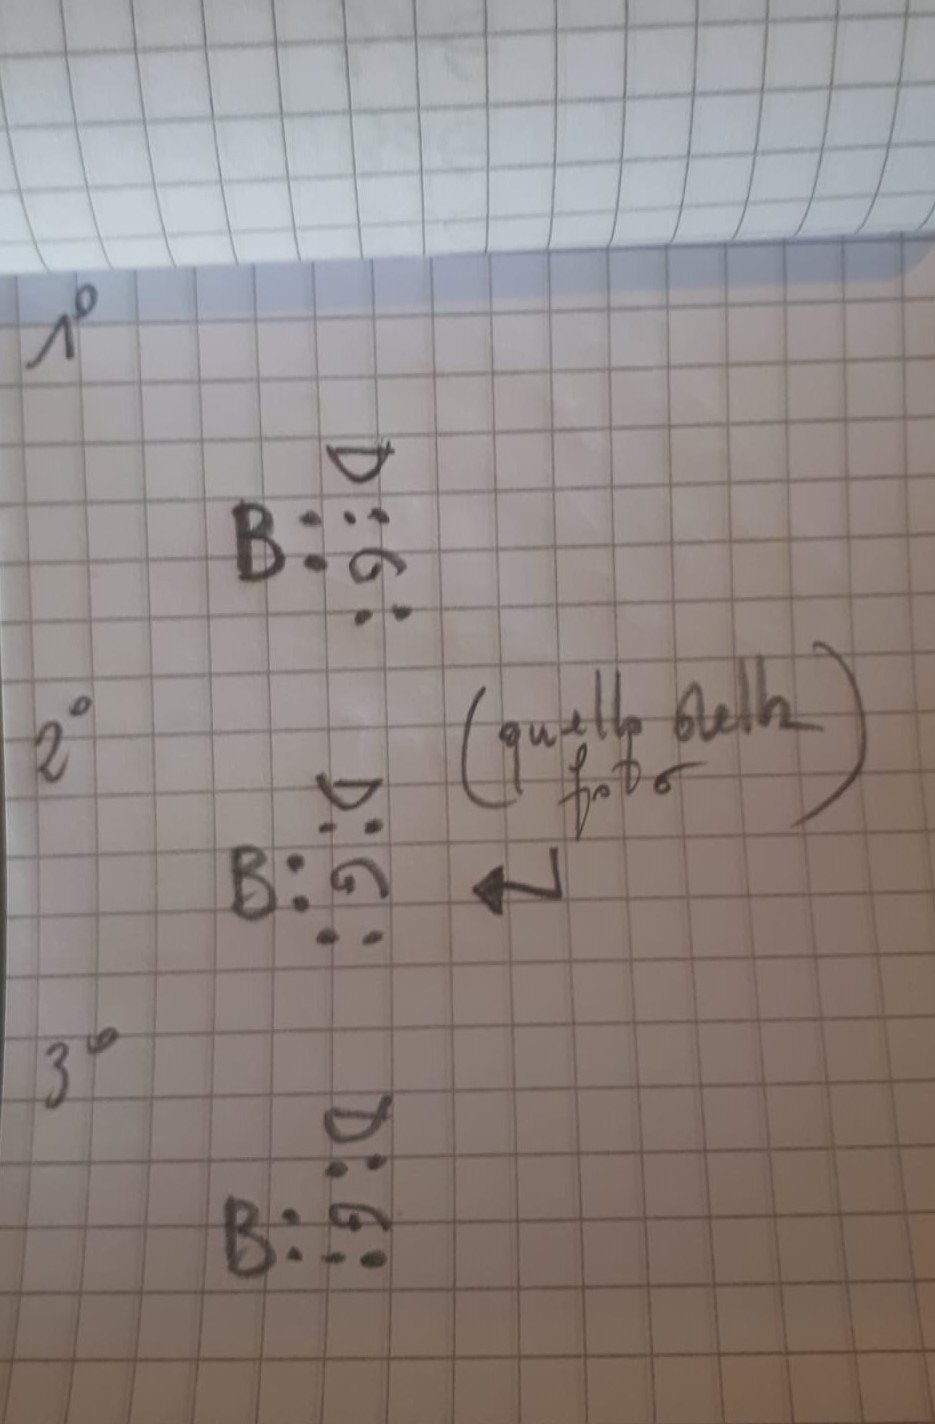 1°
D:G:
B:
2°
(quello della
foto)
D:G:
B:
3°
D:G:
B: